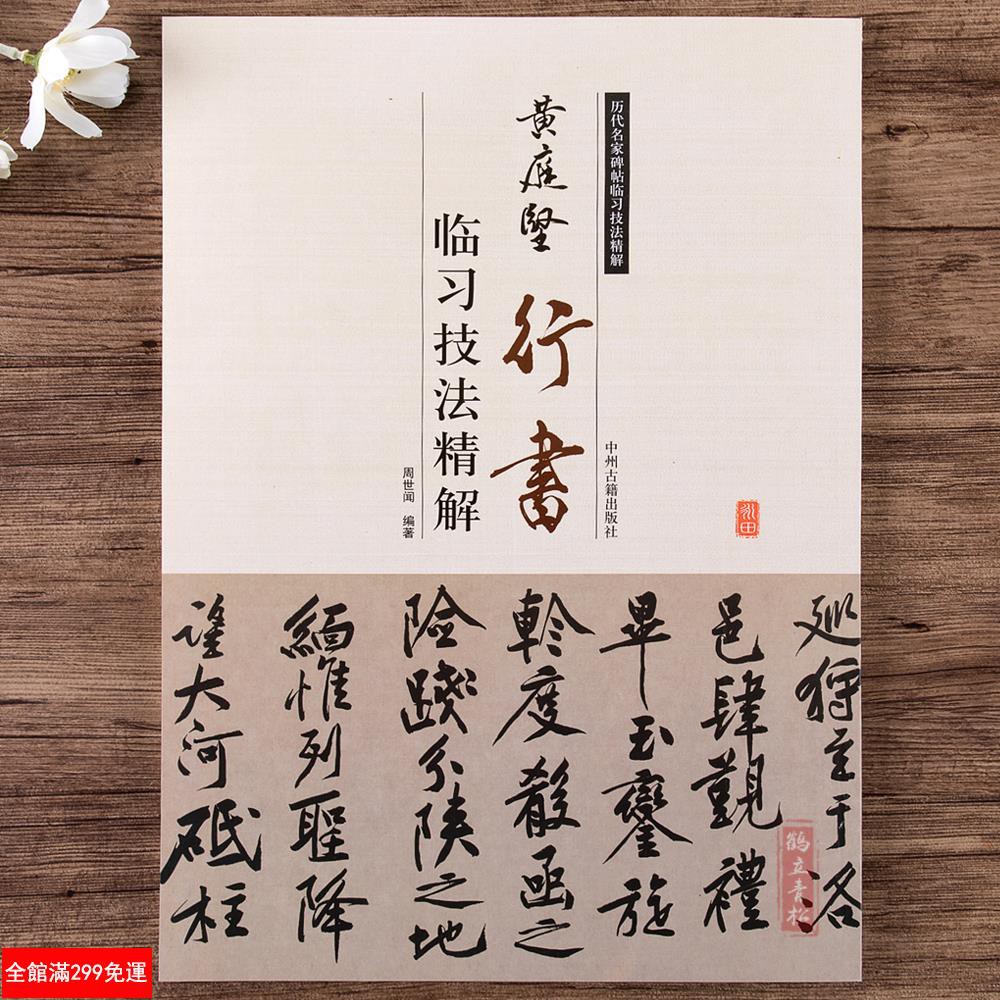 历代名家碑帖临习技法精解
黄庭堅
行書
临习技法精解
周世闻 编著
中州古籍出版社
永田
巡狩至于洛
邑肆觀禮
畢玉鑾旋
軫度殽函之
險踐分陝之地
緬惟列聖降
望大河砥柱
鹤立青松
全館滿299免運